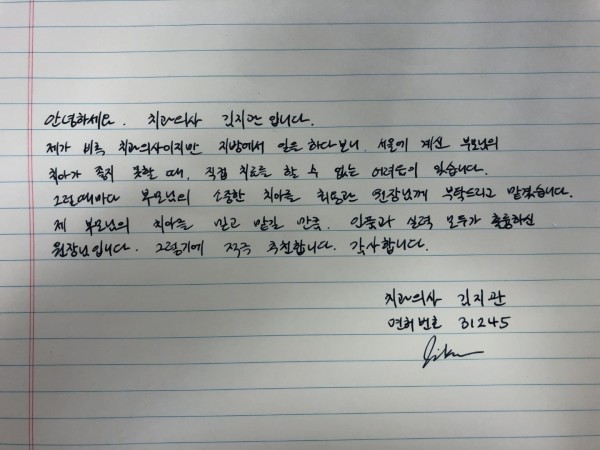 안녕하세요. 치과의사 김지관입니다.
제가 비록 치과의사이지만 지방에서 일을 하다보니, 서울에 계신 부모님의
치아가 좋지 못할 때, 직접 치료를 할 수 없는 어려움이 있습니다.
그럴때마다 부모님의 소중한 치아를 최동관 원장님께 부탁드리고 맡겼습니다.
제 부모님의 치아를 믿고 맡길 만큼, 인품과 실력 모두가 훌륭하신
원장님입니다. 그렇기에 적극 추천합니다. 감사합니다.
치과의사 김지관
면허번호 31245